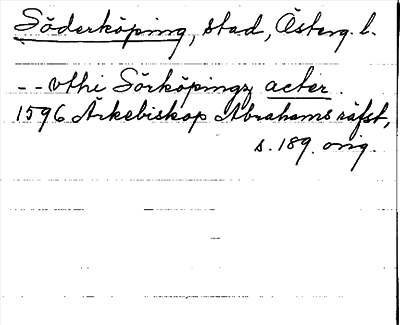 Söderköping, stad, Österg. l.
-- vthi Sörköpingz acter
1596 Ärkebiskop Abrahams räfst,
s. 189. orig.